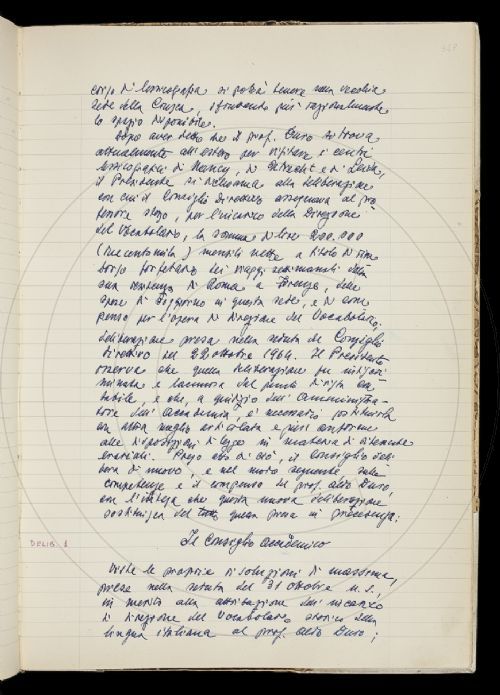 corso di lessicografia si potrà tenere nella vecchia
sede della Crusca, sfruttando più razionalmente
lo spazio disponibile.
Dopo aver detto che il prof. Duro si trova
attualmente all'estero per visitare i centri
lessicografici di Nancy, di Utrecht e di Leida,
il Presidente si richiama alla deliberazione
con cui il Consiglio direttivo assegnava al pro-
fessore stesso, per l'incarico della Direzione
del Vocabolario, la somma di lire 200.000
(duecentomila) mensili nette a titolo di rim-
borso forfetario dei viaggi settimanali dalla
sua residenza di Roma a Firenze, delle
spese di soggiorno in questa sede, e di com-
penso per l'opera di direzione del Vocabolario;
deliberazione presa nella seduta del Consiglio
Direttivo del 22 ottobre 1964. Il Presidente
osserva che quella deliberazione fu indiscri-
minata e lacunosa dal punto di vista con-
tabile, e che, a giudizio dell'amministra-
tore dell'Accademia, è necessario sostituirla
con altra meglio articolata e più conforme
alle disposizioni di legge in materia di ritenute
erariali. Preso atto di ciò, il Consiglio deli-
bera di nuovo, e nel modo seguente sulle
competenze e il compenso del prof. Aldo Duro,
con l'intesa che questa nuova deliberazione
sostituisca del tutto quella presa in precedenza:
Il Consiglio accademico
DELIB. 1
Viste le proprie risoluzioni di massima,
prese nella seduta del 31 ottobre u.s.,
in merito alla attribuzione dell'incarico
di direzione del Vocabolario storico della
lingua italiana al prof. Aldo Duro;